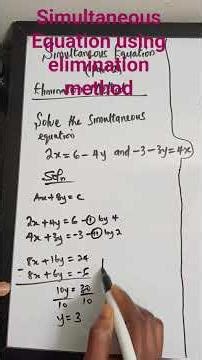 Simultaneous
Equation using
elimination
method
Simultaneous Equation
Elimination
Solve the simultaneous
equation
2x = 6 - 4y and -3 - 3y = 4x
Soln
Ax + By = C
2x + 4y = 6 - (i) by 4
4x + 3y = -3 - (ii) by 2
8x + 16y = 24
- 8x + 6y = -6
10y = 30
10 10
y = 3